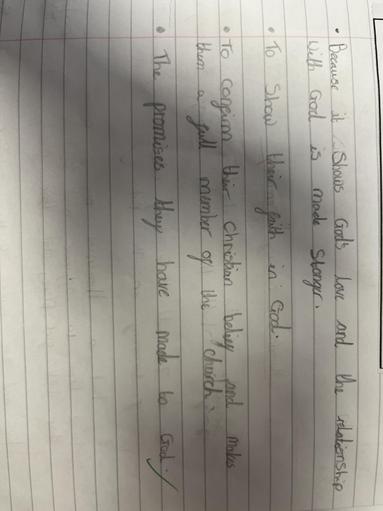 • Because it Shows God's love and the relationship
with God is made Stonger.
• To Show their faith in God.
• To congirm their Christian belief and makes
them a full member of the church.
• The promises they have made to God.